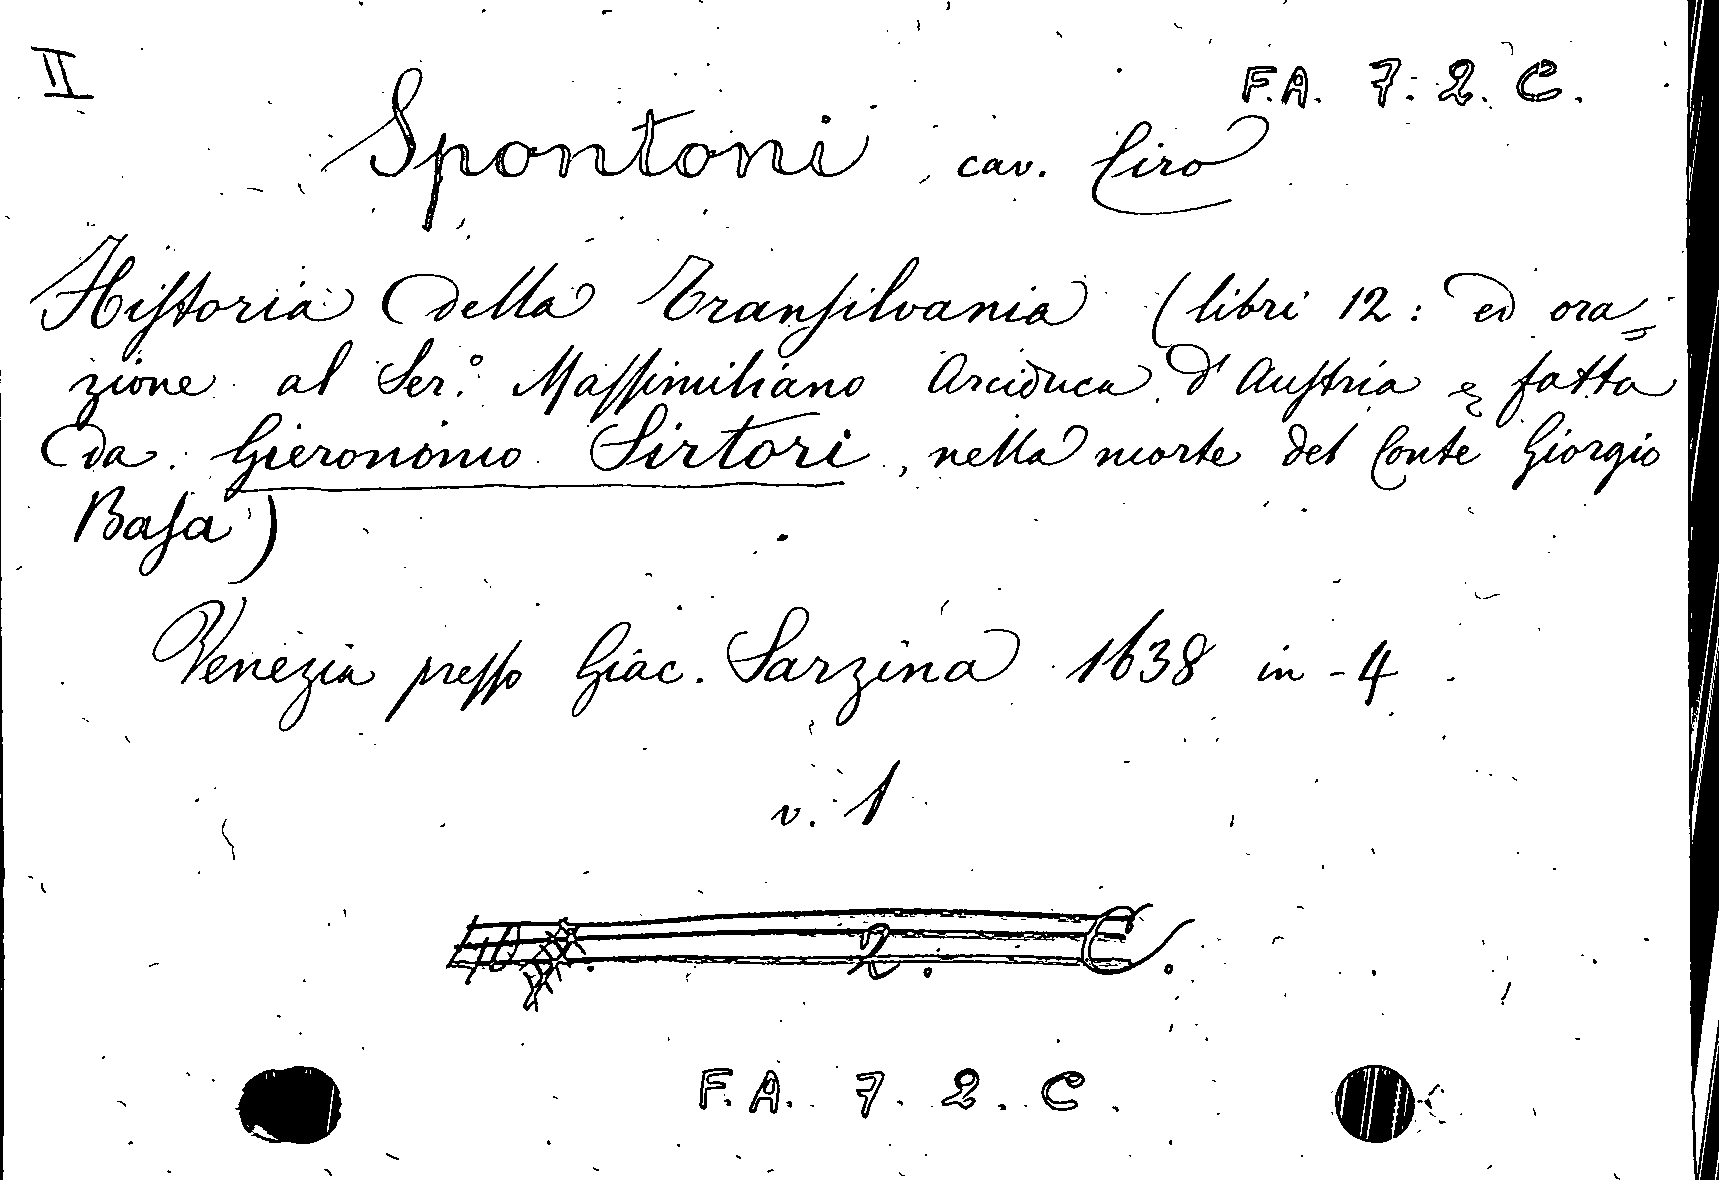 II
F.A. 7. 2. C.
Spontoni, cav. Ciro
Hiſtoria della Tranſilvania (libri 12: ed ora=
zione al Ser.° Maſſimiliano Arciduca d'Auſtria fatta
da Gieronimo Sirtori, nella morte del Conte Giorgio
Baſa)
Venezia preſſo Giac. Sarzina 1638 in-4.
v. 1
2. C.
F.A. 7. 2. C.